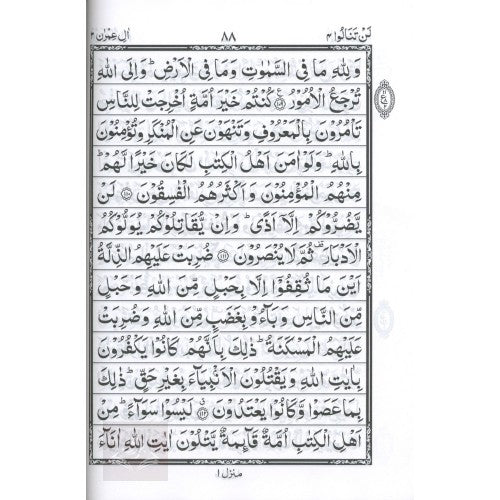 اٰل عِمْرٰن ٣ ٨٨ لَنْ تَنَالُوا ٤
وَلِلّٰهِ مَا فِی السَّمٰوٰتِ وَمَا فِی الْاَرْضِ ؕ وَاِلَی اللّٰهِ
تُرْجَعُ الْاُمُوْرُ ﴿۱۰۹﴾ كُنْتُمْ خَیْرَ اُمَّةٍ اُخْرِجَتْ لِلنَّاسِ
تَاْمُرُوْنَ بِالْمَعْرُوْفِ وَتَنْهَوْنَ عَنِ الْمُنْكَرِ وَتُؤْمِنُوْنَ
بِاللّٰهِ ؕ وَلَوْ اٰمَنَ اَهْلُ الْكِتٰبِ لَكَانَ خَیْرًا لَّهُمْ ؕ
مِنْهُمُ الْمُؤْمِنُوْنَ وَاَكْثَرُهُمُ الْفٰسِقُوْنَ ﴿۱۱۰﴾ لَنْ
یَّضُرُّوْكُمْ اِلَّاۤ اَذًی ؕ وَاِنْ یُّقَاتِلُوْكُمْ یُوَلُّوْكُمُ
الْاَدْبَارَ ۟ ثُمَّ لَا یُنْصَرُوْنَ ﴿۱۱۱﴾ ضُرِبَتْ عَلَیْهِمُ الذِّلَّةُ
اَیْنَ مَا ثُقِفُوْۤا اِلَّا بِحَبْلٍ مِّنَ اللّٰهِ وَحَبْلٍ
مِّنَ النَّاسِ وَبَآءُوْ بِغَضَبٍ مِّنَ اللّٰهِ وَضُرِبَتْ
عَلَیْهِمُ الْمَسْكَنَةُ ؕ ذٰلِكَ بِاَنَّهُمْ كَانُوْا یَكْفُرُوْنَ
بِاٰیٰتِ اللّٰهِ وَیَقْتُلُوْنَ الْاَنْۢبِیَآءَ بِغَیْرِ حَقٍّ ؕ ذٰلِكَ
بِمَا عَصَوْا وَّكَانُوْا یَعْتَدُوْنَ ﴿۱۱۲﴾ لَیْسُوْا سَوَآءً ؕ مِنْ
اَهْلِ الْكِتٰبِ اُمَّةٌ قَآئِمَةٌ یَّتْلُوْنَ اٰیٰتِ اللّٰهِ اٰنَآءَ
منزل ۱